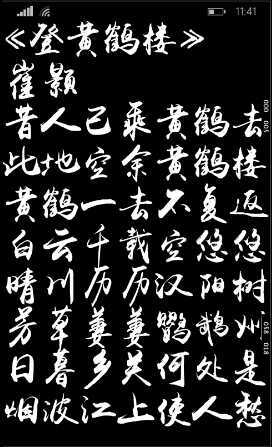 11:41
《登黄鹤楼》
崔颢
昔人已乘黄鹤去
此地空余黄鹤楼
黄鹤一去不复返
白云千载空悠悠
晴川历历汉阳树
芳草萋萋鹦鹉州
日暮乡关何处是
烟波江上使人愁